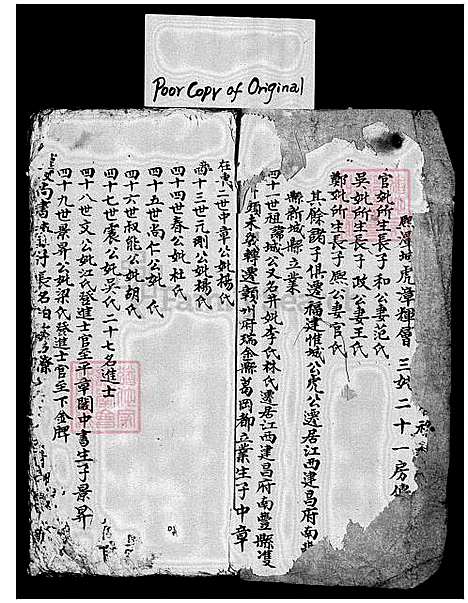 Poor Copy of Original
熙 澤 坤 虎 漳 輝 僧 三 妣 二 十 一 房 他
官妣所生長子和公妻范氏
吳妣所生長子政公妻王氏
鄭妣所生長子熙公妻官氏
其餘諸子俱遷福建惟城公虎公遷居江西建昌府南
縣新城縣立業
四十一世祖諱城公又名井妣李氏林氏遷居江西建昌府南豐縣雙
井 頼 未 幾 轉遷贛州府瑞金縣葛岡都立業生子中章
四十二世中章公妣楊氏
四十三世元剛公妣楊氏
四十四世春公妣杜氏
四十五世尚仁公妣 氏
四十六世叔能公妣胡氏
四十七世震公妣吳氏二十七名進士
四十八世文公妣江氏發進士官至平章閣中書生子景昇
四十九世景昇公妣梁氏發進士官至下金牌
尚書